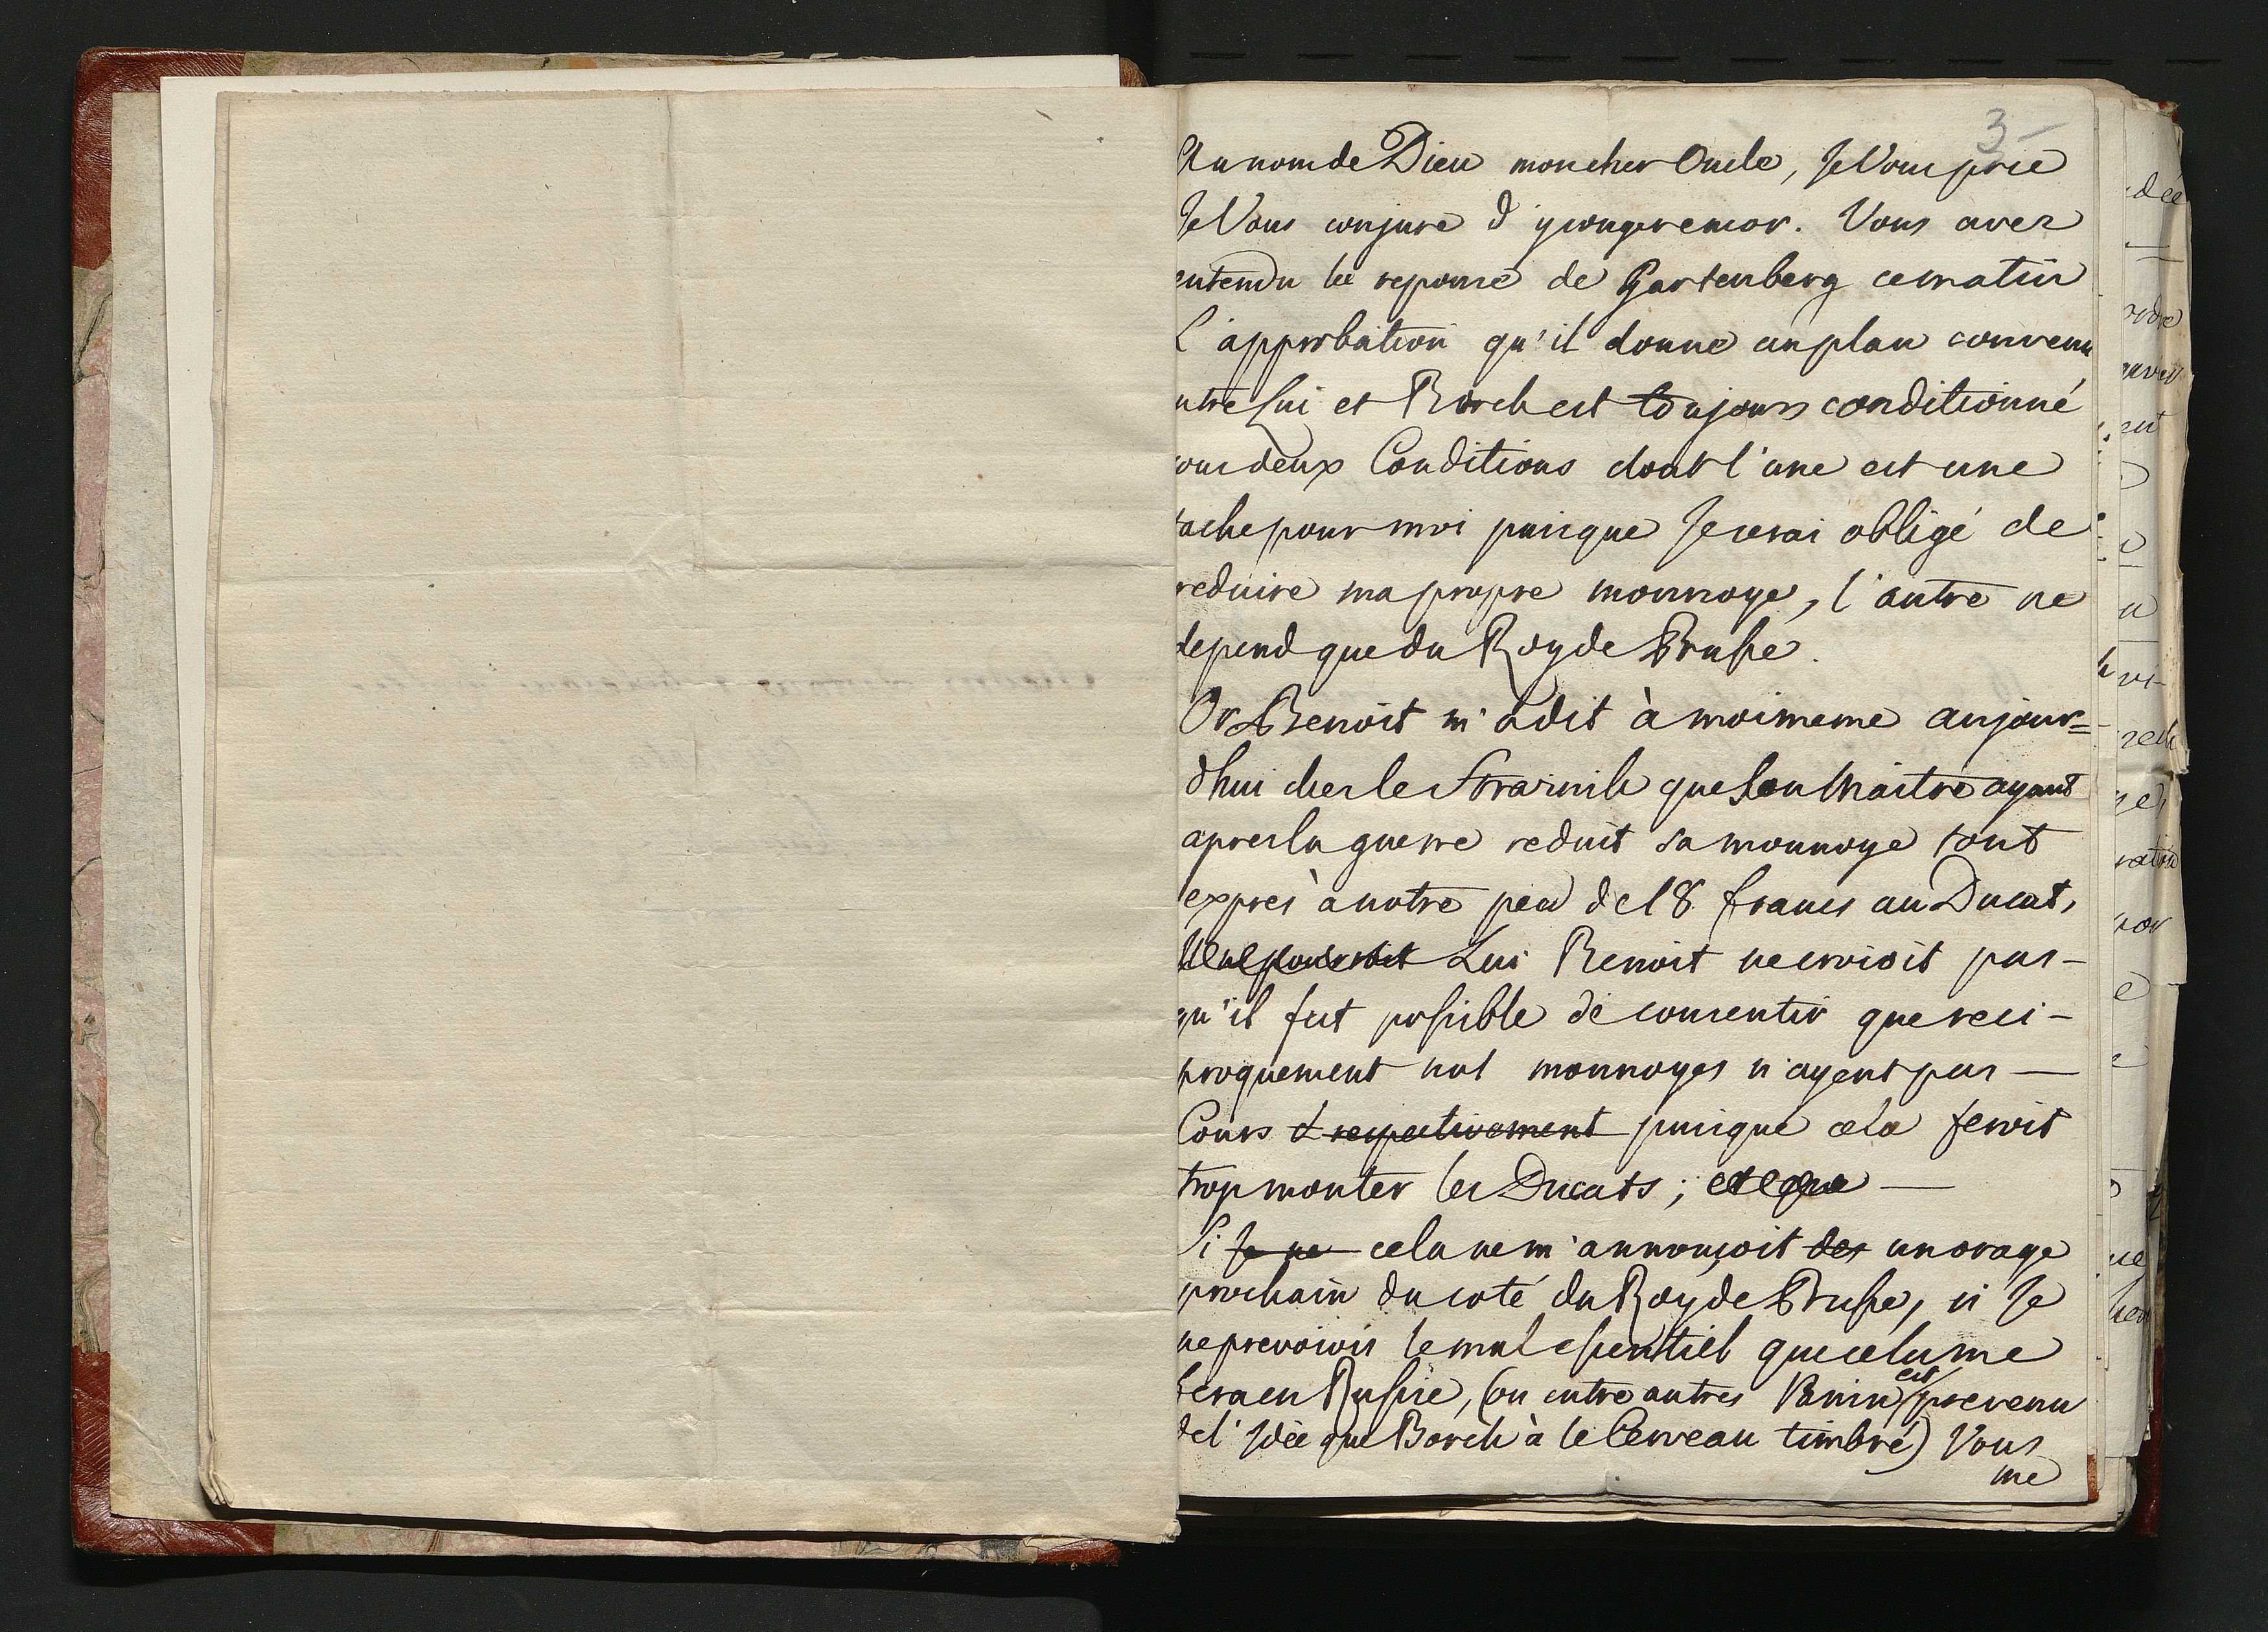 3-
Au nom de Dieu mon cher Oncle, Je Vous prie
Je Vous conjure d'y songer encor. Vous avez
entendu la reponse de Gartenberg ce matin
L'approbation qu'il donne au plan convenu
entre Lui et Borch est toujours conditionné
sous deux Conditions dont l'une est une
tache pour moi puisque Je serai obligé de
reduire ma propre monnoye, l'autre ne
depend que du Roy de Prusse.
Or Benoit m'a dit à moi meme aujour=
d'hui chez le Straznik que Son Maitre ayant
apres la guerre reduit sa monnoye tout
expres à notre pied de 18 francs au Ducat,
Lui Benoit ne croioit pas-
qu'il fut possible de consentir que reci-
proquement nos monnoyes n'ayent pas —
Cours & respectivement puisque cela feroit
trop monter les Ducats; et que —
Si Je ne cela ne m'annonçoit des un orage
prochain du coté du Roy de Prusse, si Je
ne prevoiois le mal essentiel que cela me
fera en Russie, (ou entre autres Panin est prevenu
de l'Idée que Borch à le Cerveau timbré) Vous
me